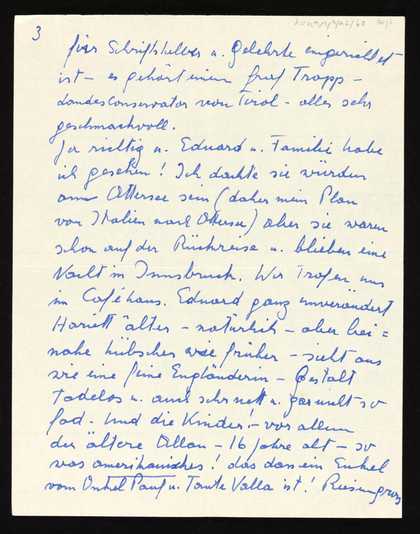 3
für Schriftsteller u. Gelehrte eingerichtet
ist – es gehört einem Graf Trapp –
Landesconservator von Tirol – alles sehr
geschmackvoll.
Ja richtig u. Eduard u. Familie habe
ich gesehen! Ich dachte sie würden
am Attersee sein (daher mein Plan
von Italien nach Attersee) aber sie waren
schon auf der Rückreise u. blieben eine
Nacht in Innsbruck. Wir trafen uns
im Caféhaus. Eduard ganz unverändert
Hariett älter – natürlich – aber bei=
nahe hübscher wie früher – sieht aus
wie eine feine Engländerin – Gestalt
Tadellos u. auch sehr nett u. gar nicht so
fad. Und die Kinder! – vor allem
der ältere Allan – 16 Jahre alt – so
was amerikanisches! das das ein Enkel
vom Onkel Paul u. Tante Valla ist! Riesengross